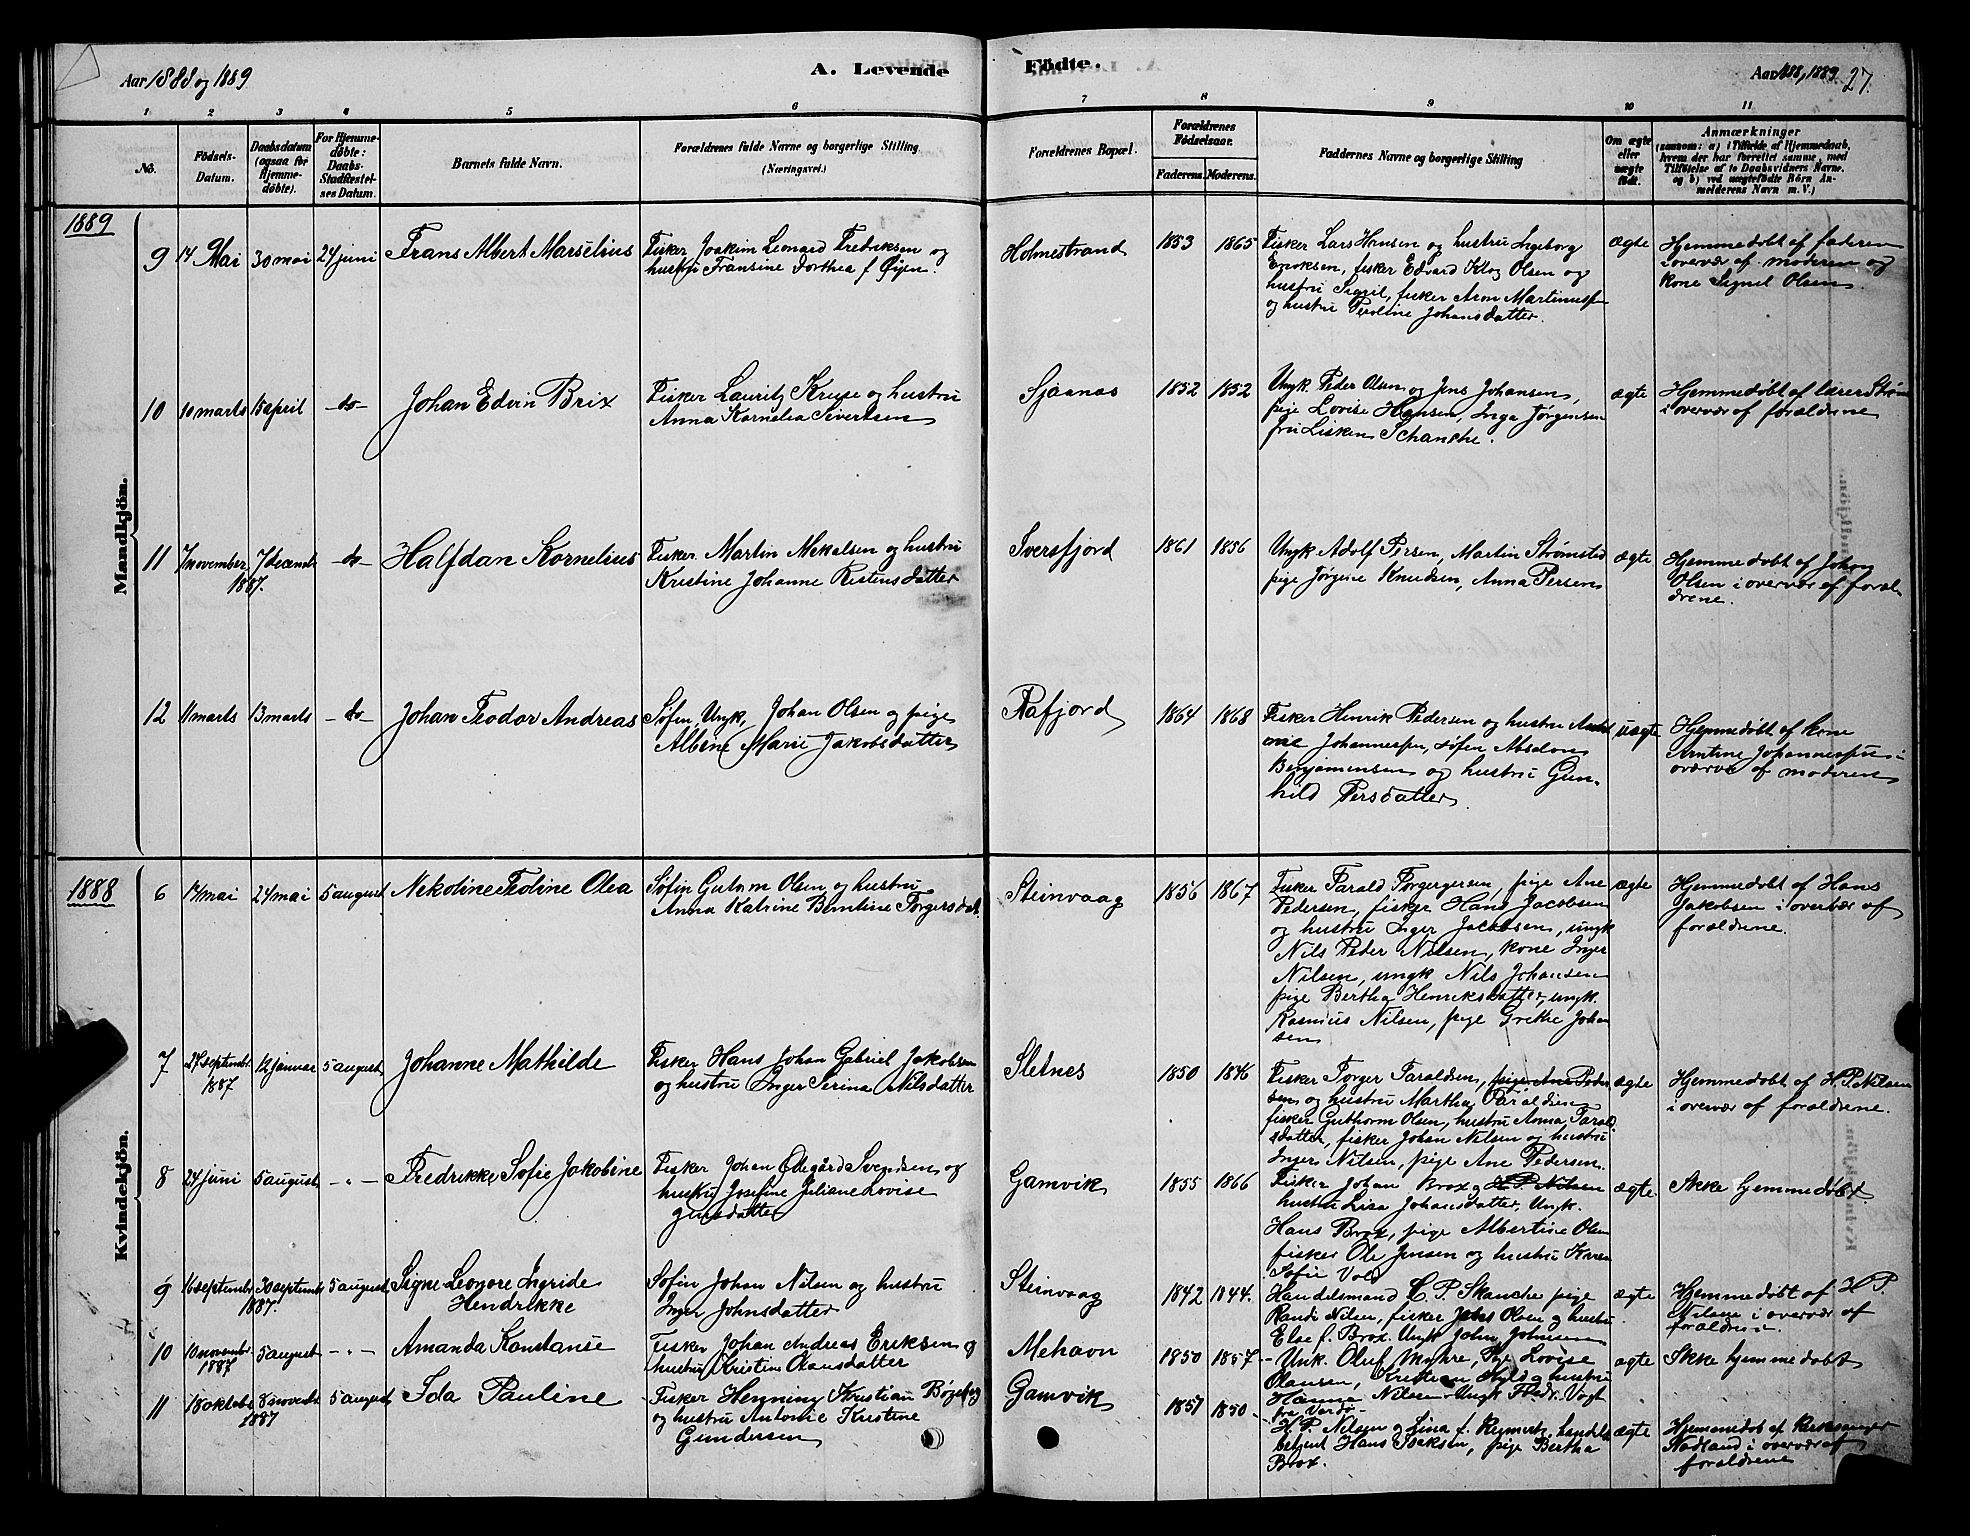 Aar 1888 og 1889
A. Levende
Födte.
Aar 1888, 1889. 27.
1 2 3 4 5 6 7 8 9 10 11
No.
Födsels-
Datum.
Daabsdatum
(ogsaa for
Hjemme-
döbte).
For Hjemme-
döbte:
Daabs-
Stadfæstel-
ses Datum.
Barnets fulde Navn.
Forældrenes fulde Navne og borgerlige Stilling
(Næringsvei.)
Forældrenes Bopæl.
Forældrenes
Födselsaar.
Faderens. Moderens.
Faddernes Navne og borgerlige Stilling
Om ægte
eller
uægte
födt.
Anmærkninger
(saasom: a) i Tilfælde af Hjemmedaab,
hvem der har forrettet samme, med
Tilföielse af to Daabsvidners Navne,
og b) ved uægtefödte Börn An-
melderens Navn m. V.)
1889
Mandkjön.
9 14 Mai 30 mai 24 juni Frans Albert Marselius
Fisker Joakim Leonard Fredriksen og
hustru Fransine Dorthea f. Øien.
Holmestrand 1853 1865
Fisker Lars Hansen og hustru Ingeborg
Eriksen, fisker Edvard Klog Olsen og
hustru Signil, fisker Aron Martinussen
og hustru Peroline Johansdatter.
ægte
Hjemmedøbt af faderen
i overvær af moderen og
kone Signil Olsen.
10 10 marts 15 april -do- Johan Edvin Brix
Fisker Lauritz Kruse og hustru
Anna Kornelia Sivertsen
Sjaanas 1852 1852
Ungk. Peder Olsen og Jens Johansen,
pige Lovise Hansen, Inga Jørgensen
fru Lisken Schanche.
ægte
Hjemmedøbt af lærer Strøm
i overvær af forældrene
11 7 november 7 decemb -do- Halfdan Kornelius
1887.
Fisker Martin Mekalsen og hustru
Kristine Johanne Kistensdatter
Iversfjord 1861 1856
Ungk Adolf Persen, Martin Strømsted
pige Jørgine Knudsen, Anna Persen
ægte
Hjemmedøbt af Johan
Olsen i overvær af foræl
drene.
12 11 marts 13 marts -do- Johan Teodor Andreas
Søfin, Ungk, Johan Olsen og pige
Albine Marie Jakobsdatter
Rafjord 1864 1868
Fisker Henrik Pedersen og hustru
Johannessen, søfin Absalon
Benjamensen og hustru Gun-
hild Persdatter.
uægte
Hjemmedøbt af kone
Arntine Johannessen i
overvær af moderen
1888
Kvindekjön.
6 14 mai 24 mai 5 august Nekoline Teoline Olea
Søfin Gutorm Olsen og hustru
Anna Katrine Berntine Torgersdat.
Steinvaag 1856 1867
Fisker Tarald Torgergersen, pige Ane
Pedersen, fisker Hans Jacobsen
og hustru Inger Jacobsen, ungk
Nils Peder Nilsen, kone Inger
Nilsen, ungk Nils Johansen
pige Bertha Henriksdatter, ungk.
Rasmus Nilsen, pige Grethe Johan
sen
ægte
Hjemmedøbt af Hans
Jakobsen i overvær af
forældrene.
7 27 septembr 12 januar 5 august Johanne Mathilde
1887
Fisker Hans Johan Gabriel Jakobsen
og hustru Inger Serina Nilsdatter
Sletnes 1850 1846
Fisker Torger Taraldsen, pige Ane Peder
sen og hustru Martha Taraldsen
fisker Guthorm Olsen, hustru Anna Taral
dsdatter, fisker Johan Nilsen og hustru
Inger Nilsen, pige Ane Pedersen.
ægte
Hjemmedøbt af H. P. Nilsen
i overvær af forældrene.
8 24 juni 5 august - " - Fredrikke Sofie Jakobine
Fisker Johan Ødegård Svendsen og
hustru Josefine Juliane Lovise
Jensdatter
Gamvik 1855 1866
Fisker Johan Brox og H. P. Nilsen
hustru Lisa Johansdatter, Ungk.
Hans Brox, pige Albertine Olsen
fisker Ole Jensen og hustru Karen
Sofie Vold
ægte.
Ikke hjemmedøbt
9 16 septembr 30 septemb 5 august Signe Leonore Ingride
1887. Hendrikke
Søfin Johan Nilsen og hustru
Inger Johnsdatter
Steinvaag 1842 1844.
Handelsmand C. P. Skanche pige
Randi Nilsen, fisker Jens Olsen og hustru
Else f. Brox. Ungk John Johnsen
ægte
Hjemmedøbt af H P.
Nilsen i overvær af
forældren.
10 10 novembr 5 august - " - Amanda Konstanse
1887
Fisker Johan Andreas Eriksen og
hustru Kristine Olausdatter
Mehavn 1850 1857
- Unk. Oluf Myhre, Pige Lovise
Olausen, Kristian Hyld og hustru
Hanna Nilsen Ungk Fredr. Vogt
fra Vardø-
ægte
Ikke hjemmedøbt
11 18 oktobr 8 novemb 5 august Ida Pauline
1887
Fisker Henning Kristian
og hustru Antonie Kristine
Gundersen
Gamvik 1851 1850
- H. P. Nilsen og Lina f. handels
betjent Hans Isaksen, pige Bertha
Brox.
ægte
Hjemmedøbt af Kirkesanger
Nodland i overvær af
forældrene